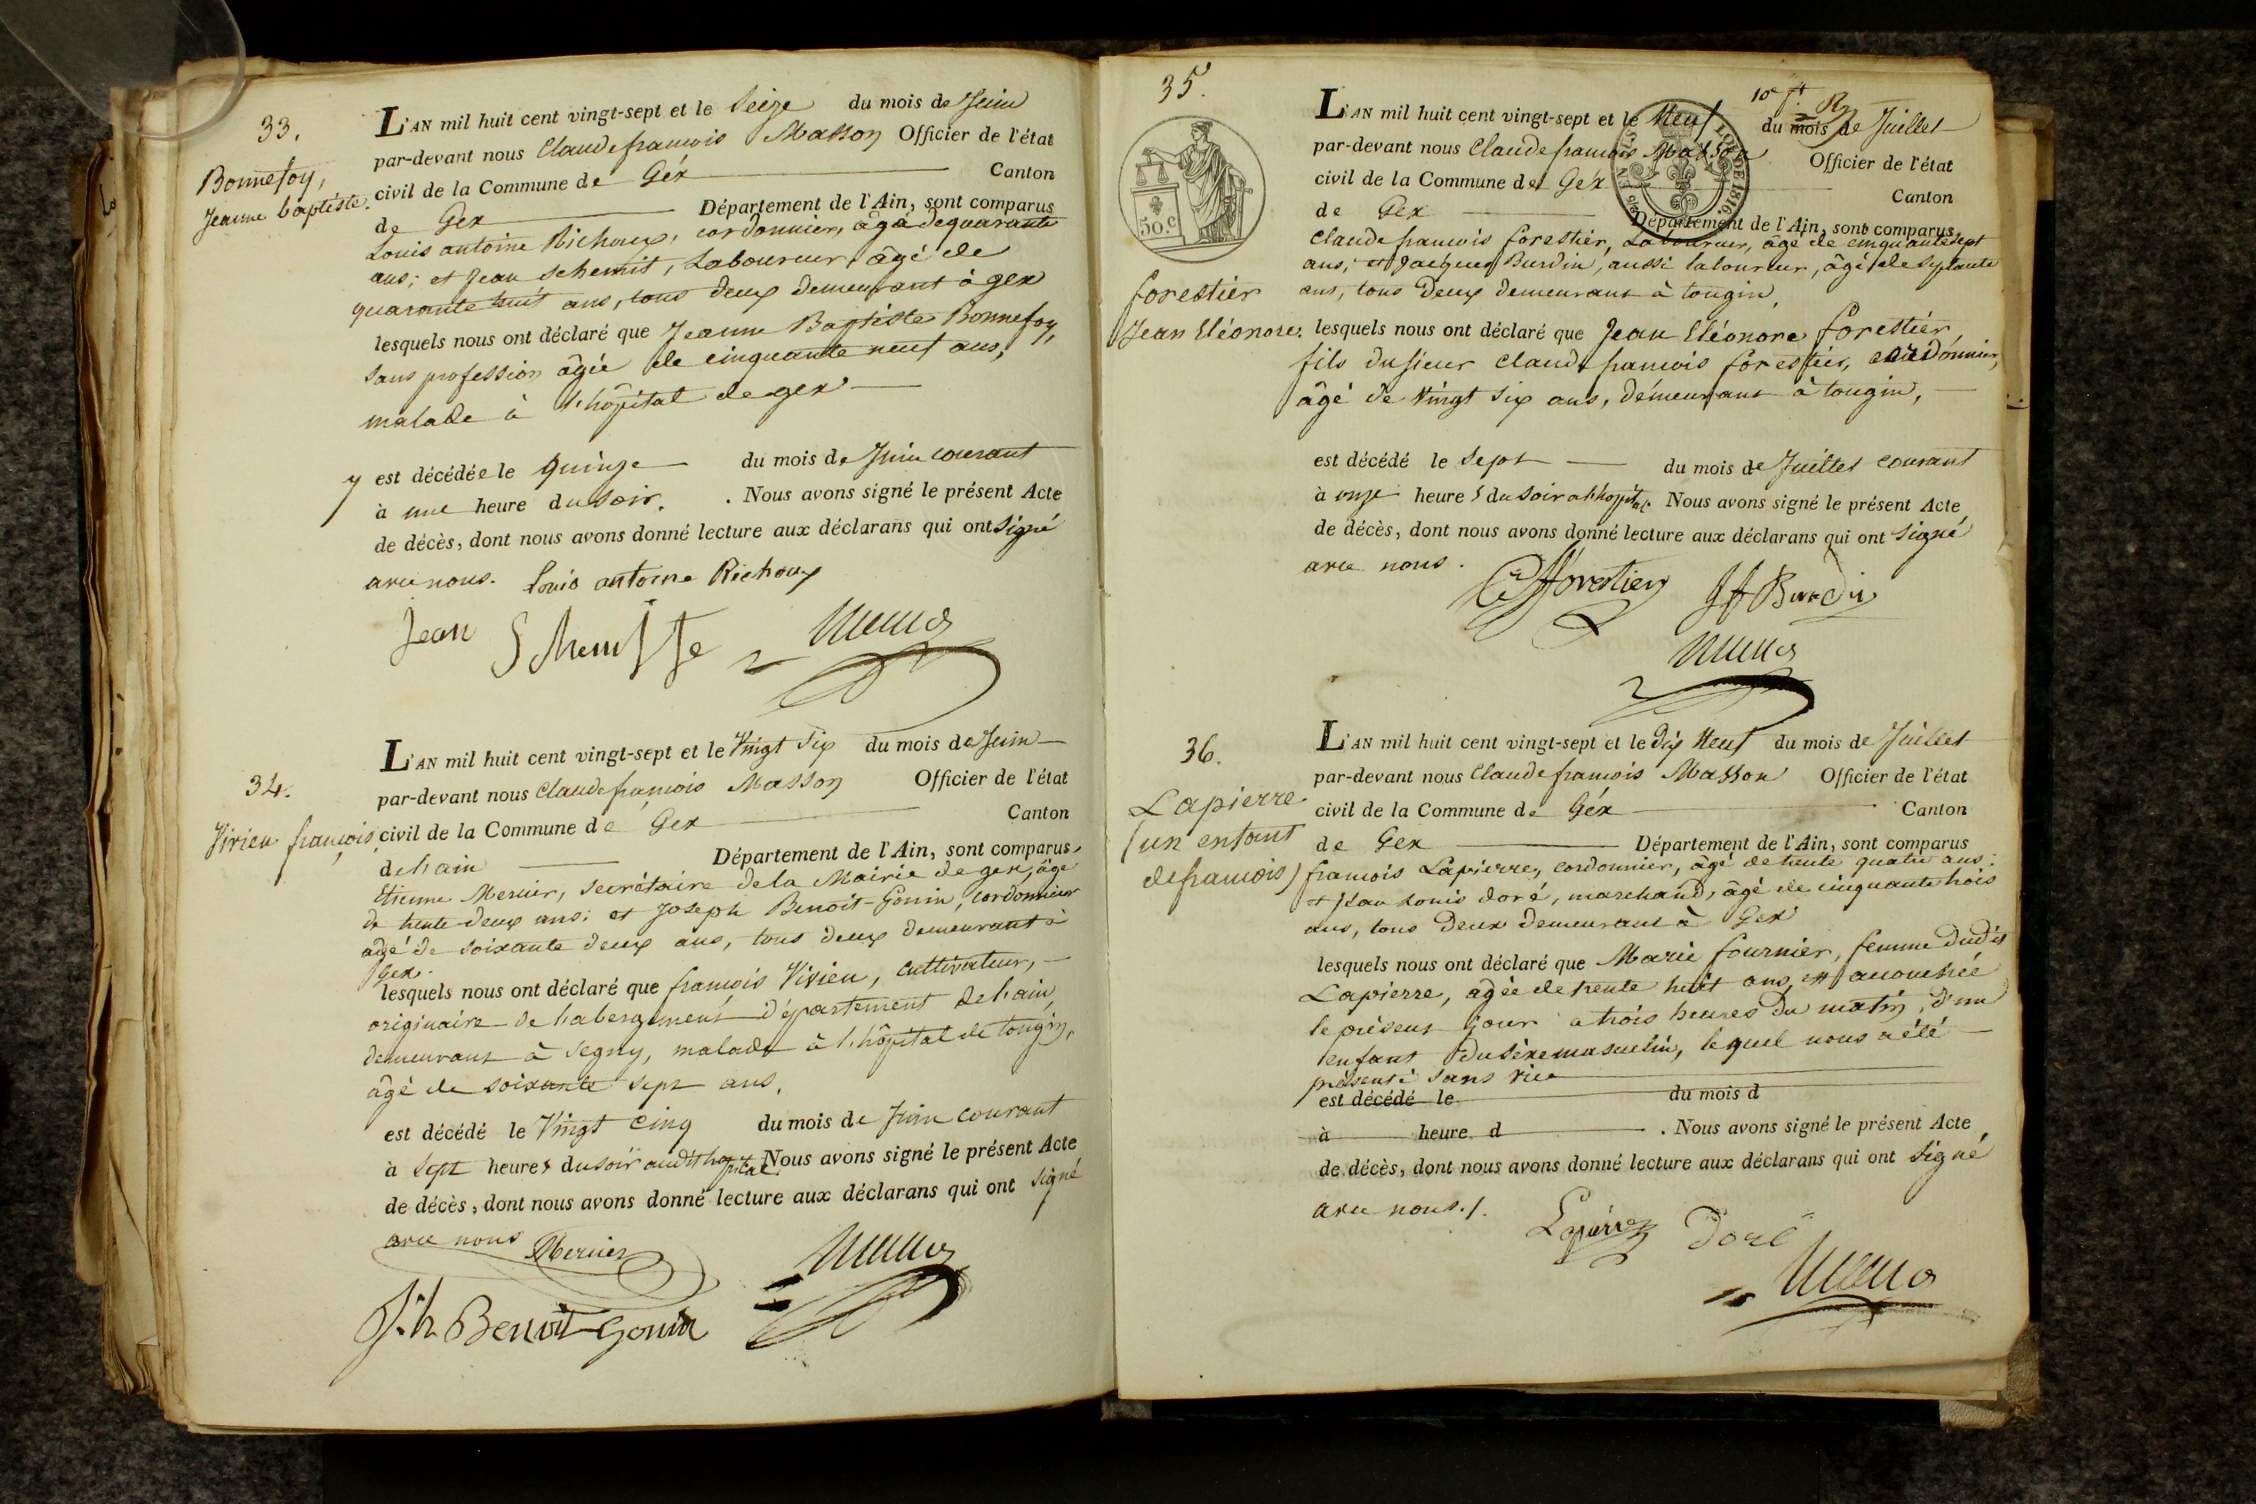 33.
Bonnefoy,
Jeanne baptiste.
L'AN mil huit cent vingt-sept et le Seize du mois de Juin
par-devant nous Claude françois Masson Officier de l'état
civil de la Commune de Géx Canton
de Gex Département de l'Ain, sont comparus
Louis antoine Richoux, cordonnier, âgé de quarante
ans; et Jean Schemit, Laboureur, âgé de
quarante huit ans, tous deux demeurant à gex
lesquels nous ont déclaré que Jeanne Baptiste Bonnefoy,
sans profession âgée de cinquante neuf ans,
malade à l'hôpital de gex
est décédée le quinze du mois de Juin courant
à une heure du soir. . Nous avons signé le présent Acte
de décès, dont nous avons donné lecture aux déclarans qui ont signé
avec nous. Louis antoine Richoux
Jean
34.
Vivien françois
L'AN mil huit cent vingt-sept et le Vingt Six du mois de Juin
par-devant nous Claude françois Masson Officier de l'état
civil de la Commune de Gex Canton
de hain Département de l'Ain, sont comparus
Etienne Mercier, secrétaire de la Mairie de gex, âgé
de trente deux ans; et Joseph Benoit-Gonin, cordonnier
âgé de soixante deux ans, tous deux demeurant à
Gex.
lesquels nous ont déclaré que françois Vivien, cultivateur,
originaire de habergement département de hain,
demeurant à Segny, malade à l'hôpital de tougin,
âgé de soixante sept ans,
est décédé le Vingt cinq du mois de Juin courant
à sept heures du soir audit hopital Nous avons signé le présent Acte
de décès, dont nous avons donné lecture aux déclarans qui ont signé
avec nous Mercier
J.h Benoit-Gonin
35.
50.c
LOI DE 1816.
forestier
Jean Eléonore.
L'AN mil huit cent vingt-sept et le Neuf du mois de Juillet
par-devant nous Claude françois Masson Officier de l'état
civil de la Commune de Géx Canton
de Gex Département de l'Ain, sont comparus
Claude françois forestier, Laboureur, âgé de cinquante sept
ans, et Jacques Burdin, aussi laboureur, âgé de septante
ans, tous deux demeurant à tougin,
lesquels nous ont déclaré que Jean Eléonore forestier,
fils du sieur claude françois forestier, cordonnier,
âgé de Vingt six ans, démeurant à tougin,
est décédé le Sept du mois de Juillet courant
à onze heures du soir a l'hopital. Nous avons signé le présent Acte
de décès, dont nous avons donné lecture aux déclarans qui ont signé
avec nous.
forestier Burdin
36.
Lapierre
(un enfant
de francois)
L'AN mil huit cent vingt-sept et le dix Neuf du mois de Juillet
par-devant nous Claude françois Masson Officier de l'état
civil de la Commune de Géx Canton
de Gex Département de l'Ain, sont comparus
francois Lapierre, cordonnier, âgé de trente quatre ans;
et Jean Louis doré, marchand, âgé de cinquante trois
ans, tous deux demeurant à Gex
lesquels nous ont déclaré que Marie fournier, femme dudit
Lapierre, âgée de trente huit ans, est accouchée
le présent jour a trois heures du matin, d'un
enfant du sèxe masculin, lequel nous a été
présenté sans vie
est décédé le du mois d
à heure d . Nous avons signé le présent Acte
de décès, dont nous avons donné lecture aux déclarans qui ont signé
avec nous./.
Lapierre doré